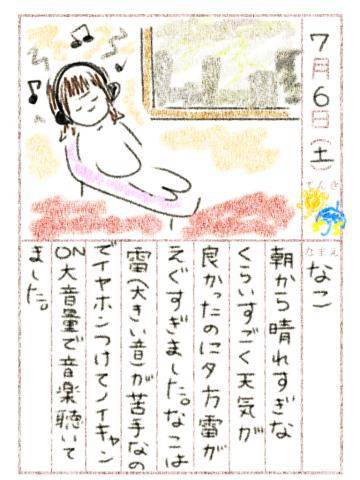 7月6日(土)
てんき
なまえ
なこ
朝から晴れすぎな
くらいすごく天気が
良かったのに夕方雷が
えぐすぎました。なこは
雷(大きい音)が苦手なの
でイヤホンつけてノイキャン
ON大音量で音楽聴いて
ました。